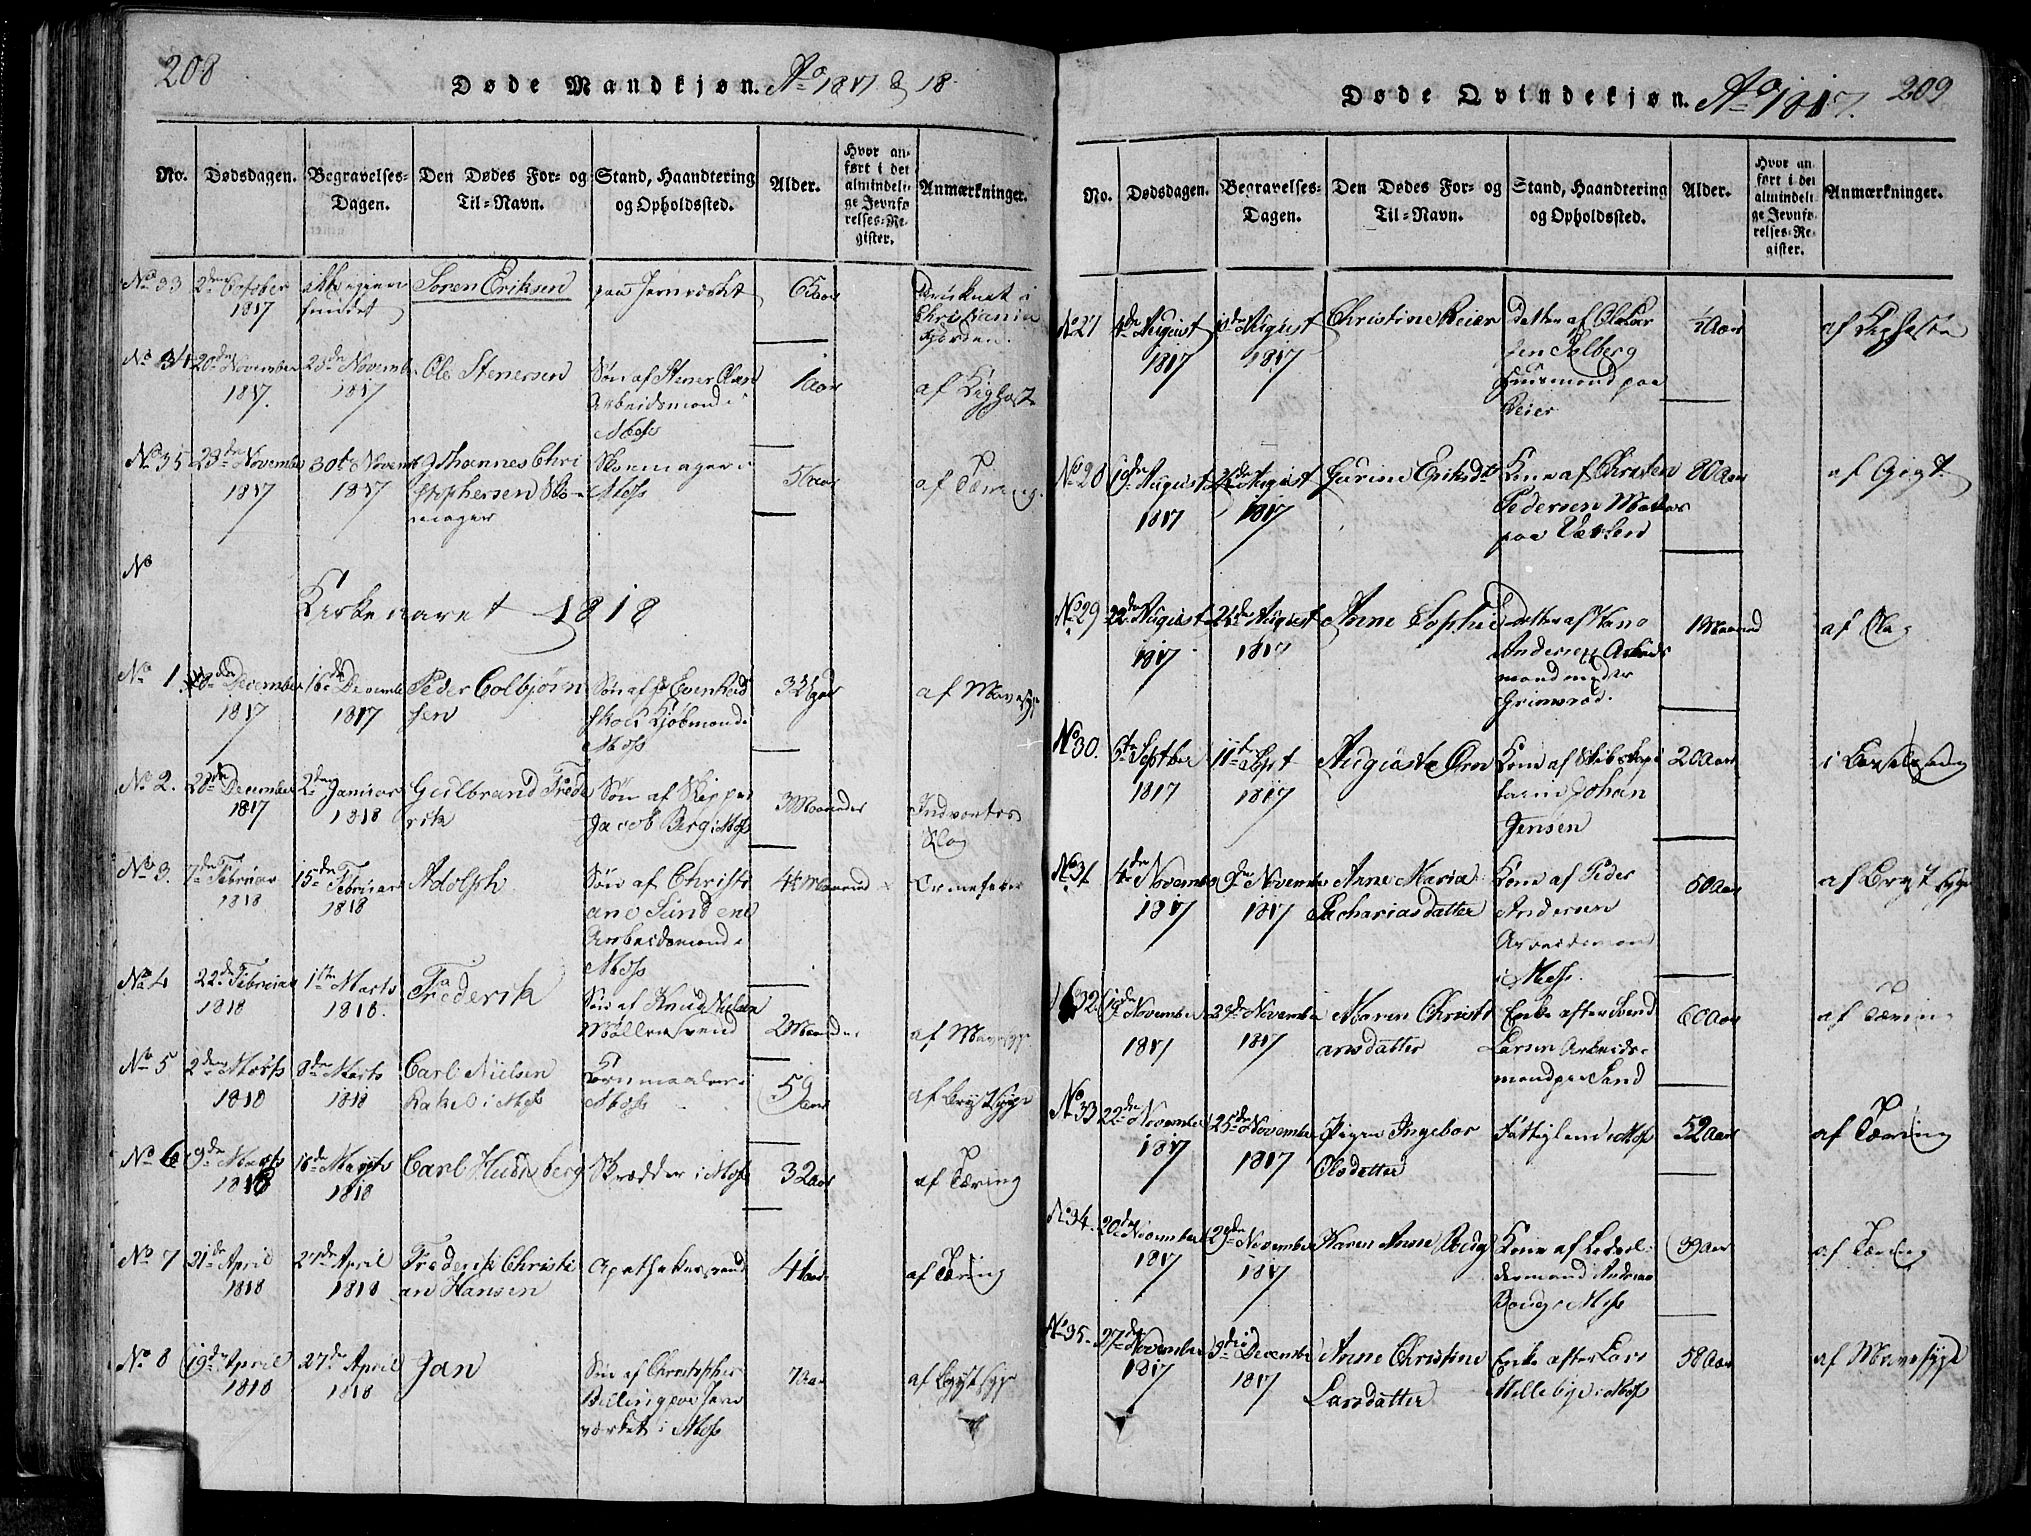 208
Døde Mandkjøn. Ao 1817 & 18
No.
Dødsdagen.
Begravelses-
Dagen.
Den Dødes For- og
Til-Navn.
Stand, Haandtering
og Opholdssted.
Alder.
Hvor an-
ført i det
almindeli-
ge Jevnfø-
relses-Re-
gister.
Anmærkninger.
No 33
2den October
1817
ikke igjen
fundet
Søren Eriksen
paa Jernværket
65 aar
Druknet i
Christiania
Fjorden.
No 34
20de November
1817.
23de Novemb.
1817
Ole Stenersen
Søn af Stener Olsen
Arbeidsmand i
Moss
1 aar
af
No 35
23de November
1817
30te Novemb
1817
Johannes Chri
stophersen Sko-
mager
Skoemager i
Moss
af Tæring.
No
Kirkeaaret 1818
No 1
December
1817
16de Decembr
1817
Peder Colbjørn
sen
Søn af Even
Kjøbmand i
Moss
3 Uger
af Mavesyge
No 2.
28de December
1817
2den Januar
1818
Gulbrand Fride
rik
Søn af Skipper
Jacob Berg i Moss
3 Maaneder
Indvortes
Slag
No 3.
7de Februar
1818
15de Februar
1818
Adolph
Søn af Christi
ane Sundene
Arbeidsmand i
Moss
4 Maaned
Ormefeber
No 4
22de Februar
1818
1ste Marts
1818.
Frederik
Søn af Knud Nielsen
Møllersvend
2 Maander
af Mavesyge
No 5
2den Marts
1818
8de Marts
1818
Carl Nielsen
i Moss
Kornmaaler i
Moss
59 aar
af Brystsyge
No 6
9de Marts
1818
16de Marts
1818
Carl Hudnsberg
Skrædder i Moss
32 aar
af Tæring
No 7
21de April
1818
27de April
1818
Frederik Christi
an Hansen
Apothekersvend
41 aar
af Tæring
No 8
19de April
1818
27de April
1818
Jan
Søn af Christopher
Billing paa Jern
værket i Moss
7 Aar
af Brystsyge
Døde Qvindekjøn. Ao 1817. 209
No.
Dødsdagen.
Begravelses-
Dagen.
Den Dødes For- og
Til-Navn.
Stand, Haandtering
og Opholdssted.
Alder.
Hvor an-
ført i det
almindeli-
ge Jevnfø-
relses-Re-
gister.
Anmærkninger.
No 27
4de August
1817
10de August
1817
Christine Reier
Datter af Ole Lar
sen Solberg
Huusmand paa
Reier
af
No 28
19de August
1817
August
1817
Gurine Eriksdr
Kone af Christen
Pedersen Matros
paa Værlen
80 Aar
af Gigt
No 29
22de August
1817
24de August
1817
Anne Sophie
Datter af Hans
Andersen Arbeids
mand neder
Grimsrød.
1 Maaned
af Slag
No 30.
5te Septber
1817
11te Sept
1817
Auguste Orn
Kone af Skibskapi
tain Johan
Jensen
20 Aar
i Barselseng
No 31
4de Novembr
1817
9de Novembr
1817
Anne Maria
Zachariasdatter
Kone af Peder
Andersen
Arbeidsmand
i Moss.
50 Aar
af Brystsyge
No 32.
19de November
1817
23de November
1817
Maren Christi
ansdatter
Enke efter Svend
Larsen Arbeids-
mand paa Sand
60 Aar
af Tæring
No 33
22de November
1817
25de November
1817
Pigen Ingebor
Olsdatter
Fattiglem i Moss
52 Aar
af Tæring
No 34.
20de November
1817
29de November
1817
Karen Anne Boug
Kone af
dermand Andreas
Boug i Moss
39 aar
af Tæring
No 35.
27de November
1817
3die December
1817
Anne Christine
Larsdatter
Enke efter Lars
Mellebye i Moss
58 Aar
af Mavesyge